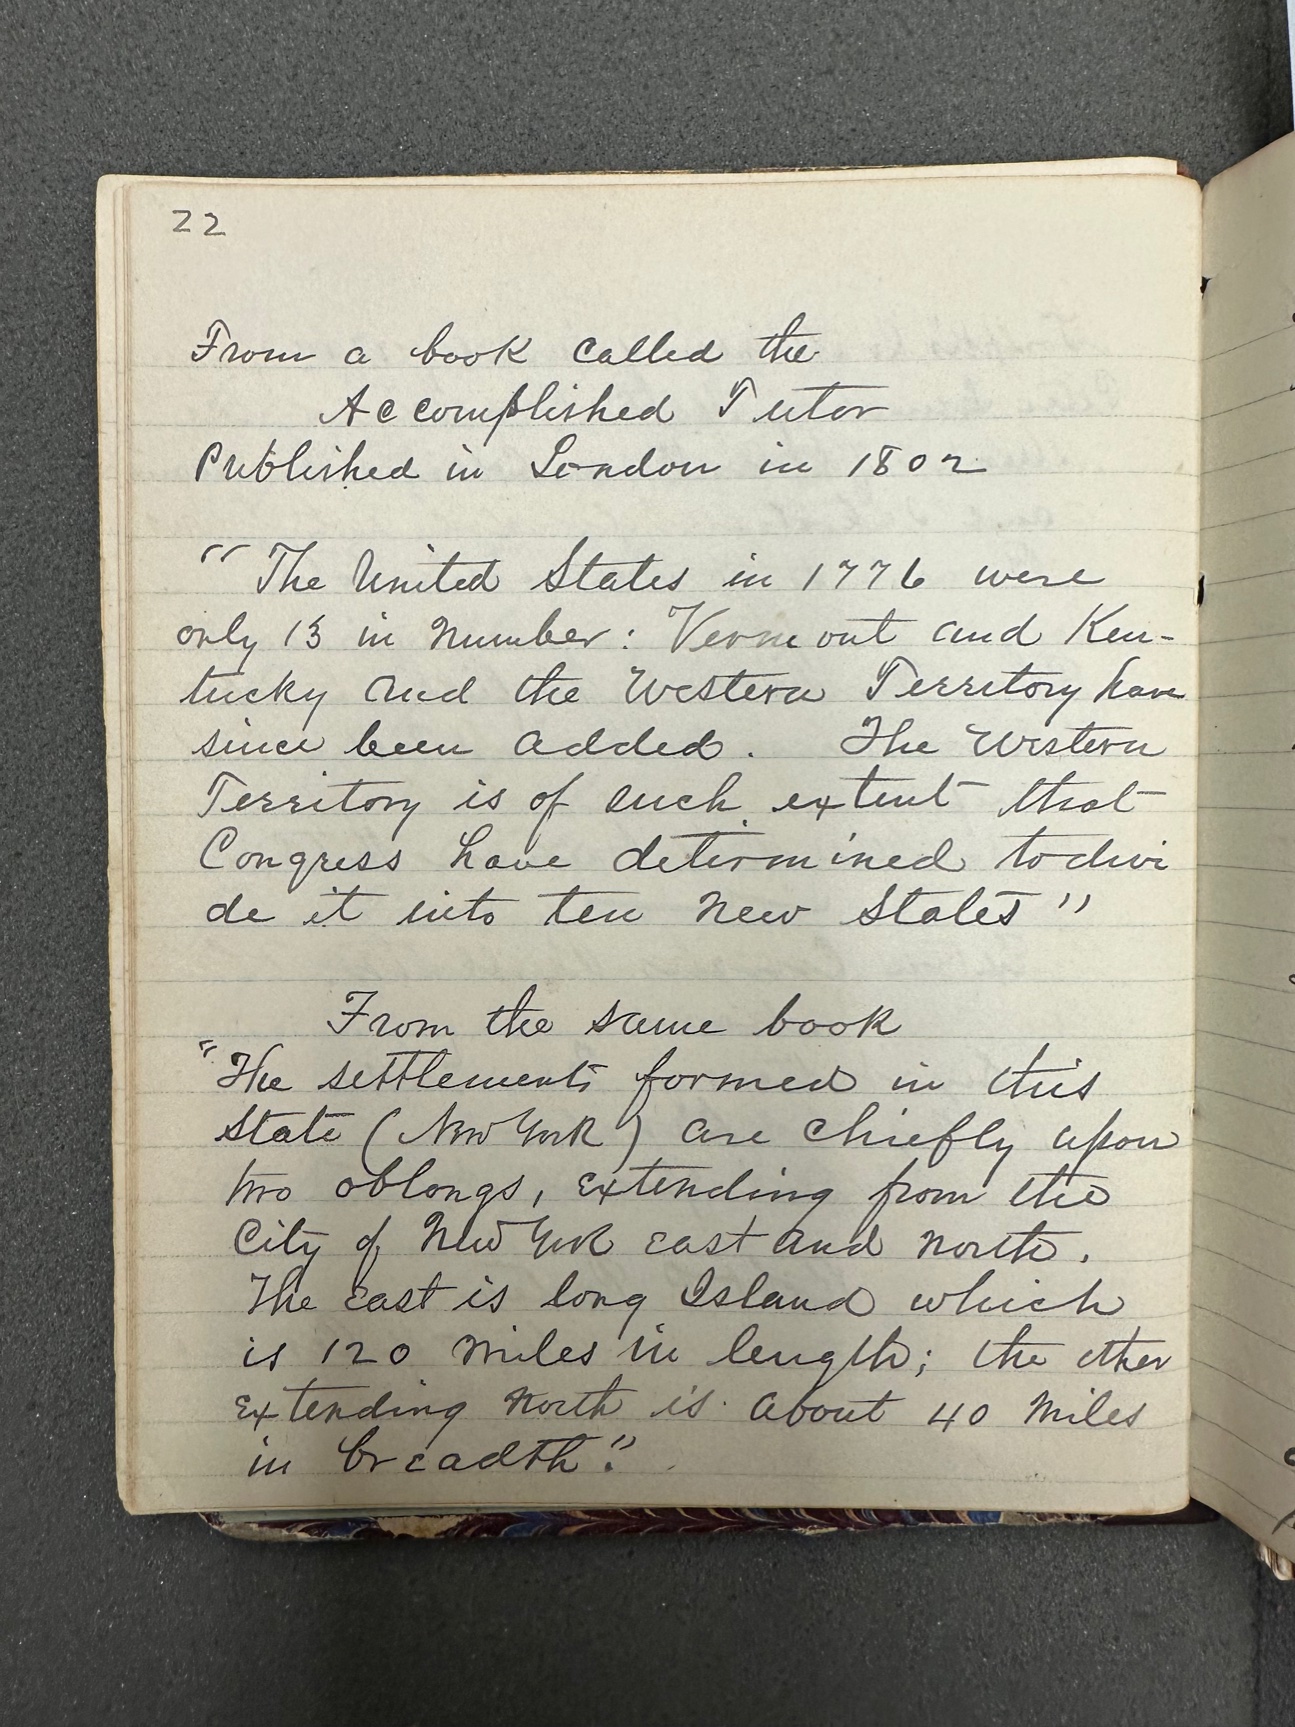 22
From a book called the
Accomplished Tutor
Published in London in 1802
"The United States in 1776 were
only 13 in Number: Vermont and Ken-
tucky and the Western Territory have
since been added. The Western
Territory is of such extent that
Congress have determined to divi
de it into ten New States"
From the same book
"The settlements formed in this
State (New York) are chiefly upon
two oblongs, extending from the
City of New York east and north.
The east is long Island which
is 120 miles in length; the other
extending North is about 40 Miles
in breadth."